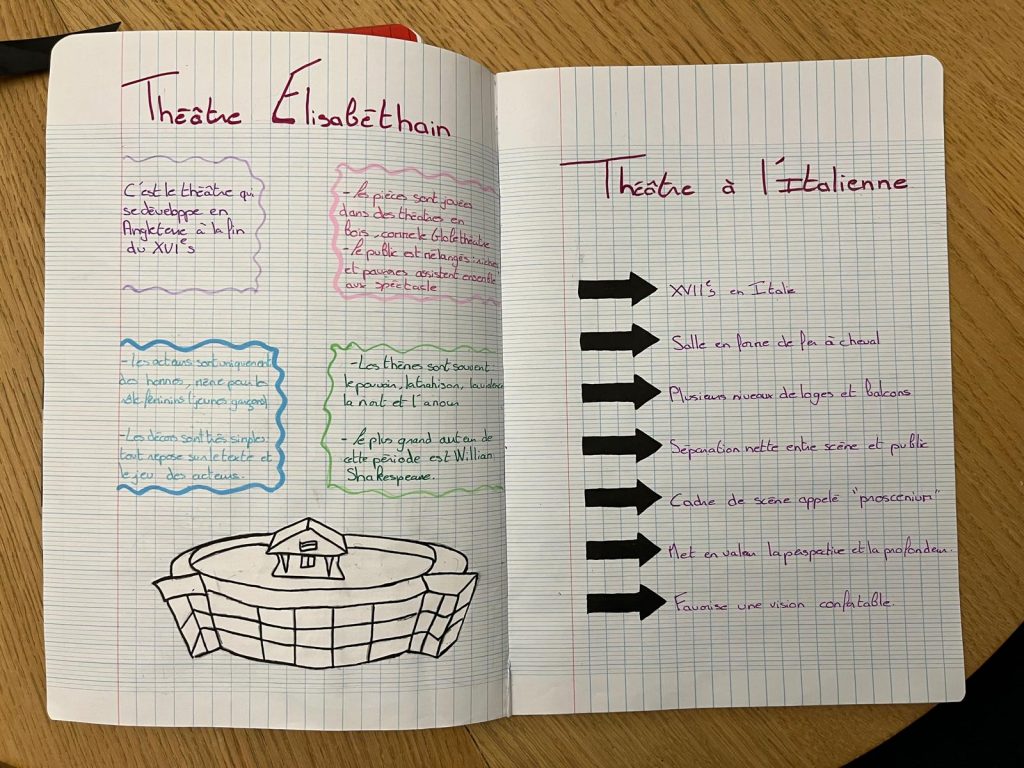 Théâtre Élisabéthain
C'est le théâtre qui
se développe en
Angleterre à la fin
du XVIe s
- les pièces sont jouées
dans des théâtres en
bois, comme le Globe théâtre
- le public est mélangés : riches
et pauvres assistent ensemble
aux spectacle
- Les acteurs sont uniquement
des hommes, même pour les
rôle féminins (jeunes garçons)
- Les décors sont très simples,
tout repose sur le texte et
le jeu des acteurs.
- Les thèmes sont souvent :
le pouvoir, la trahison, la violence
la mort et l'amour
- le plus grand auteur de
cette période est William
Shakespeare.
Théâtre à l'Italienne
XVIIe s en Italie
Salle en forme de fer à cheval
Plusieurs niveaux de loges et balcons
Séparation nette entre scène et public
Cadre de scène appelé "proscenium"
Met en valeur la perspective et la profondeur.
Favorise une vision confortable.